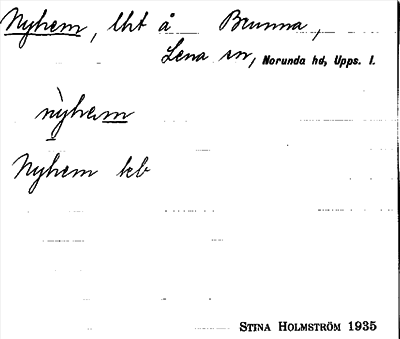 Nyhem, lht å Brunna,
Lena sn, Norunda hd, Upps. l.
nỳhem
Nyhem kb
STINA HOLMSTRÖM 1935